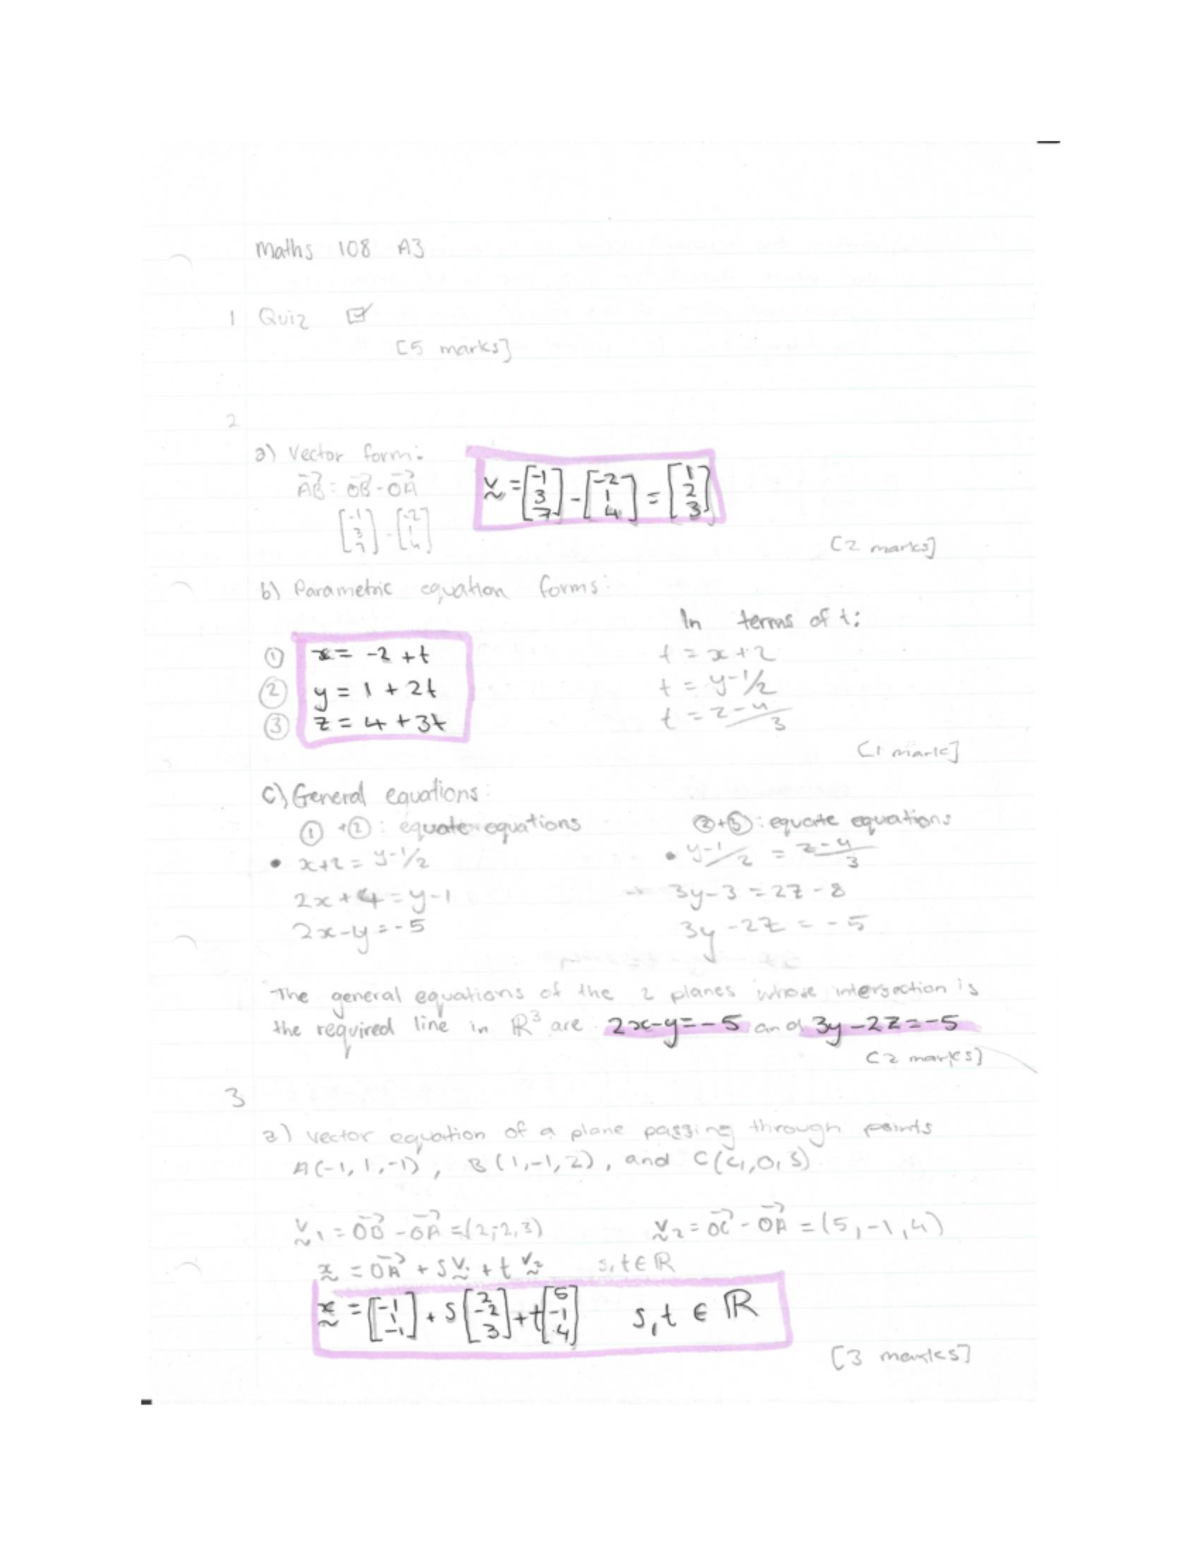 Maths 108 A3
1 Quiz ☑
[5 marks]
2
a) Vector form:
AB = OB - OA
[-1 3 7] - [-2 1 4]
v = [-1 3 7] - [-2 1 4] = [1 2 3]
[2 marks]
b) Parametric equation forms:
In terms of t:
① x = -2 + t
② y = 1 + 2t
③ z = 4 + 3t
t = x+2
t = y-1/2
t = z-4/3
[1 mark]
c) General equations:
① + ②: equate equations
• x+2 = y-1/2
2x+4 = y-1
2x-y = -5
②+③: equate equations
• y-1/2 = z-4/3
→ 3y-3 = 2z-8
3y-2z = -5
The general equations of the 2 planes whose intersection is
the required line in ℝ³ are 2x-y=-5 and 3y-2z=-5
[2 marks]
3
a) vector equation of a plane passing through points
A(-1,1,-1), B(1,-1,2), and C(4,0,3).
v₁ = OB - OA = (2,-2,3)
v₂ = OC - OA = (5,-1,4)
x = OA + sv₁ + tv₂ s,t ∈ ℝ
x = [-1 1 -1] + s[2 -2 3] + t[5 -1 4] s,t ∈ ℝ
[3 marks]